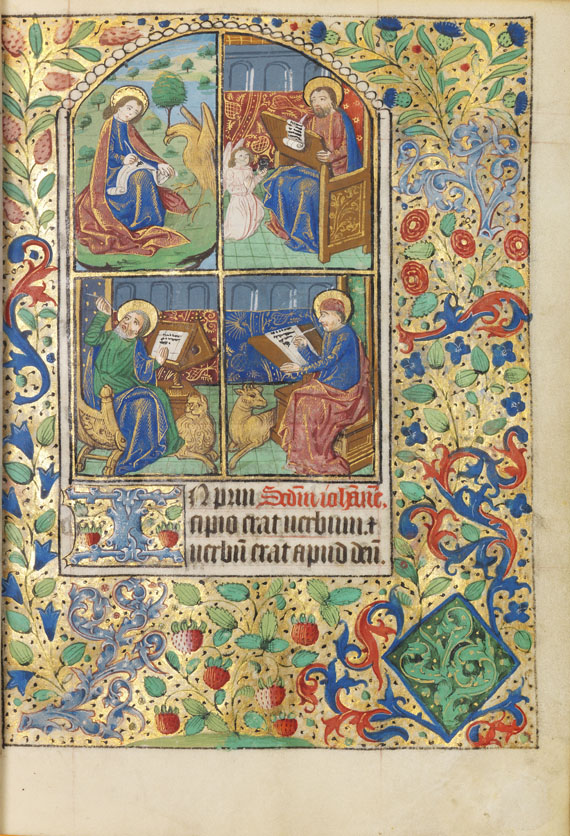 IN prin Scdm ioħane.
cipio erat uerbum. ⁊
uerbū erat apud deū.